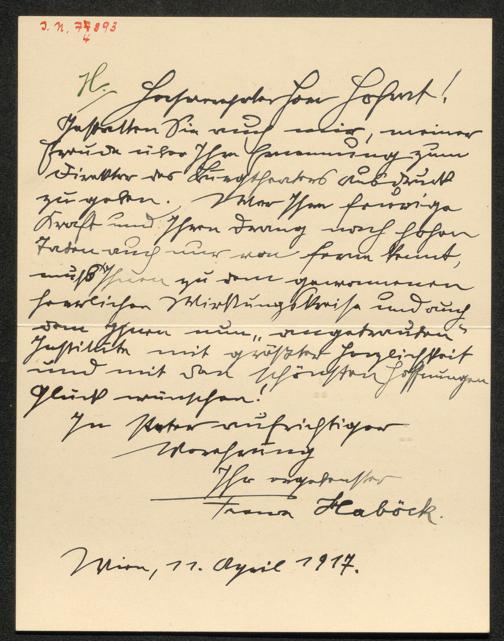 J. N. 77893
4
H.
Hochverehrter Herr Hofrat!
Gestatten Sie auch mir, meiner
Freude über Ihre Ernennung zum
Direktor des Burgtheaters Ausdruck
zu geben. Wer Ihre feurige
Kraft und Ihren Drang nach hohen
Taten auch nur von ferne kennt,
muß Ihnen zu dem gewonnenen
herrlichen Wirkungskreise und auch
dem Ihnen nun „angetrauten"
Institute mit größter Herzlichkeit
und mit den schönsten Hoffnungen
Glück wünschen!
In steter aufrichtiger
Verehrung
Ihr ergebenster
Franz Haböck.
Wien, 11. April 1917.